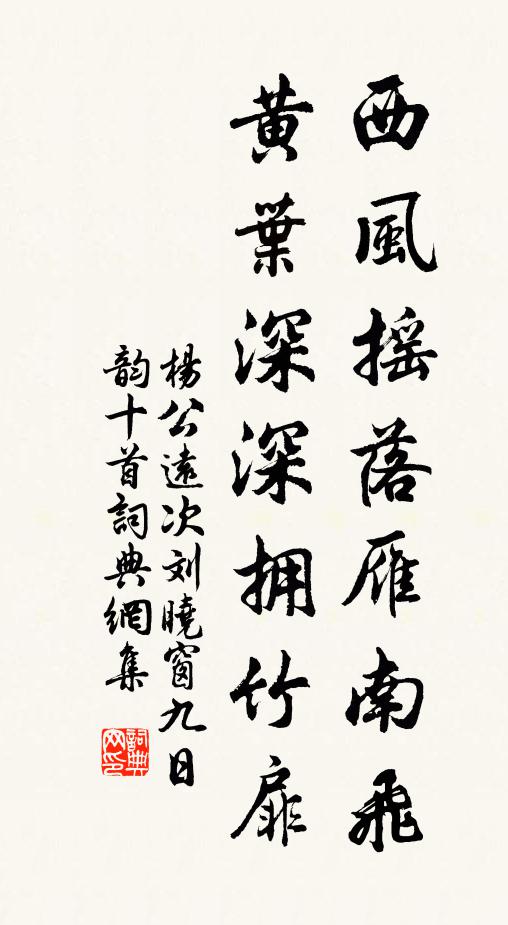 西風摇落雁南飛
黄葉深深拥竹扉
楊公遠次刘曉窗九日
韵十首詞典網集
詞典网印